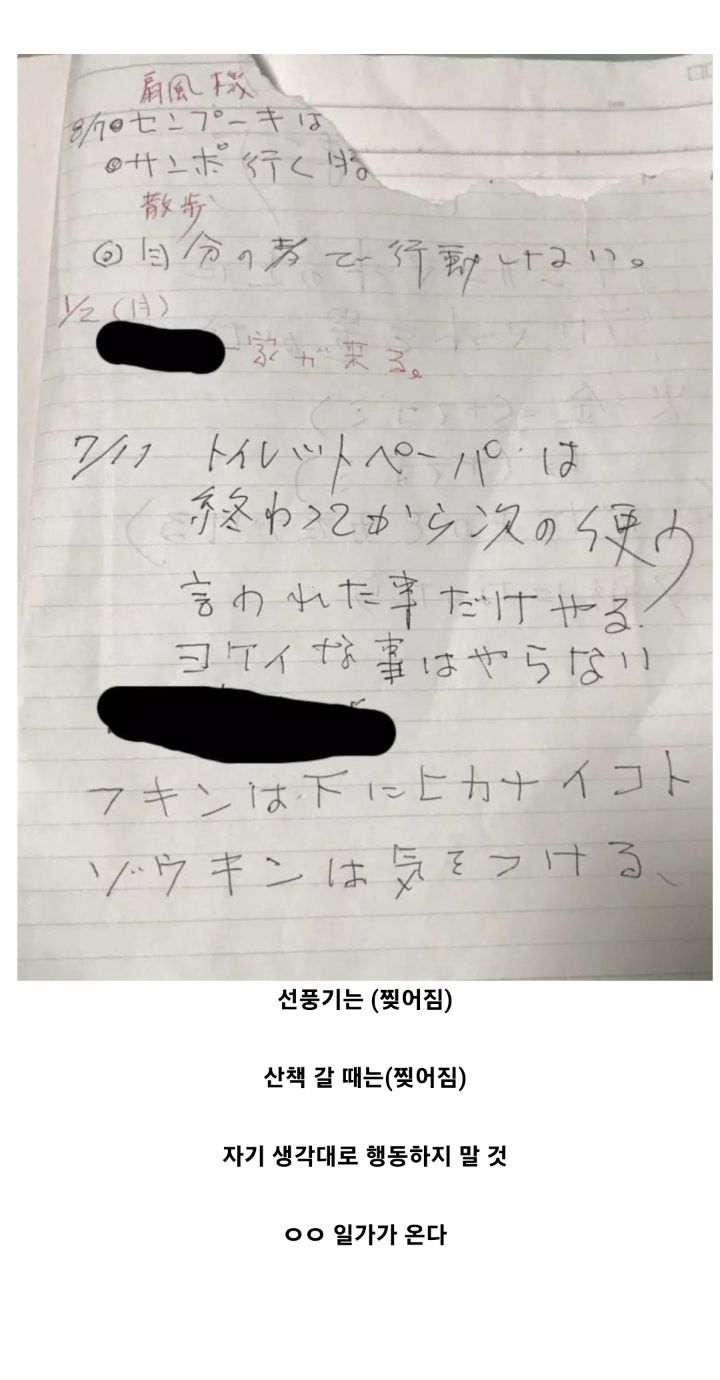 扇風機
8/7◎センプーキは
◎サンポ行く時
散歩
◎自分の考で行動しない。
1/2(月)
一家が来る。
7/17 トイレットペーパーは
終わってから次の使う
言われた事だけやる。
ヨケイな事はやらない
フキンは下にヒカナイコト
ゾウキンは気をつける、
선풍기는 (찢어짐)
산책 갈 때는(찢어짐)
자기 생각대로 행동하지 말 것
ㅇㅇ 일가가 온다